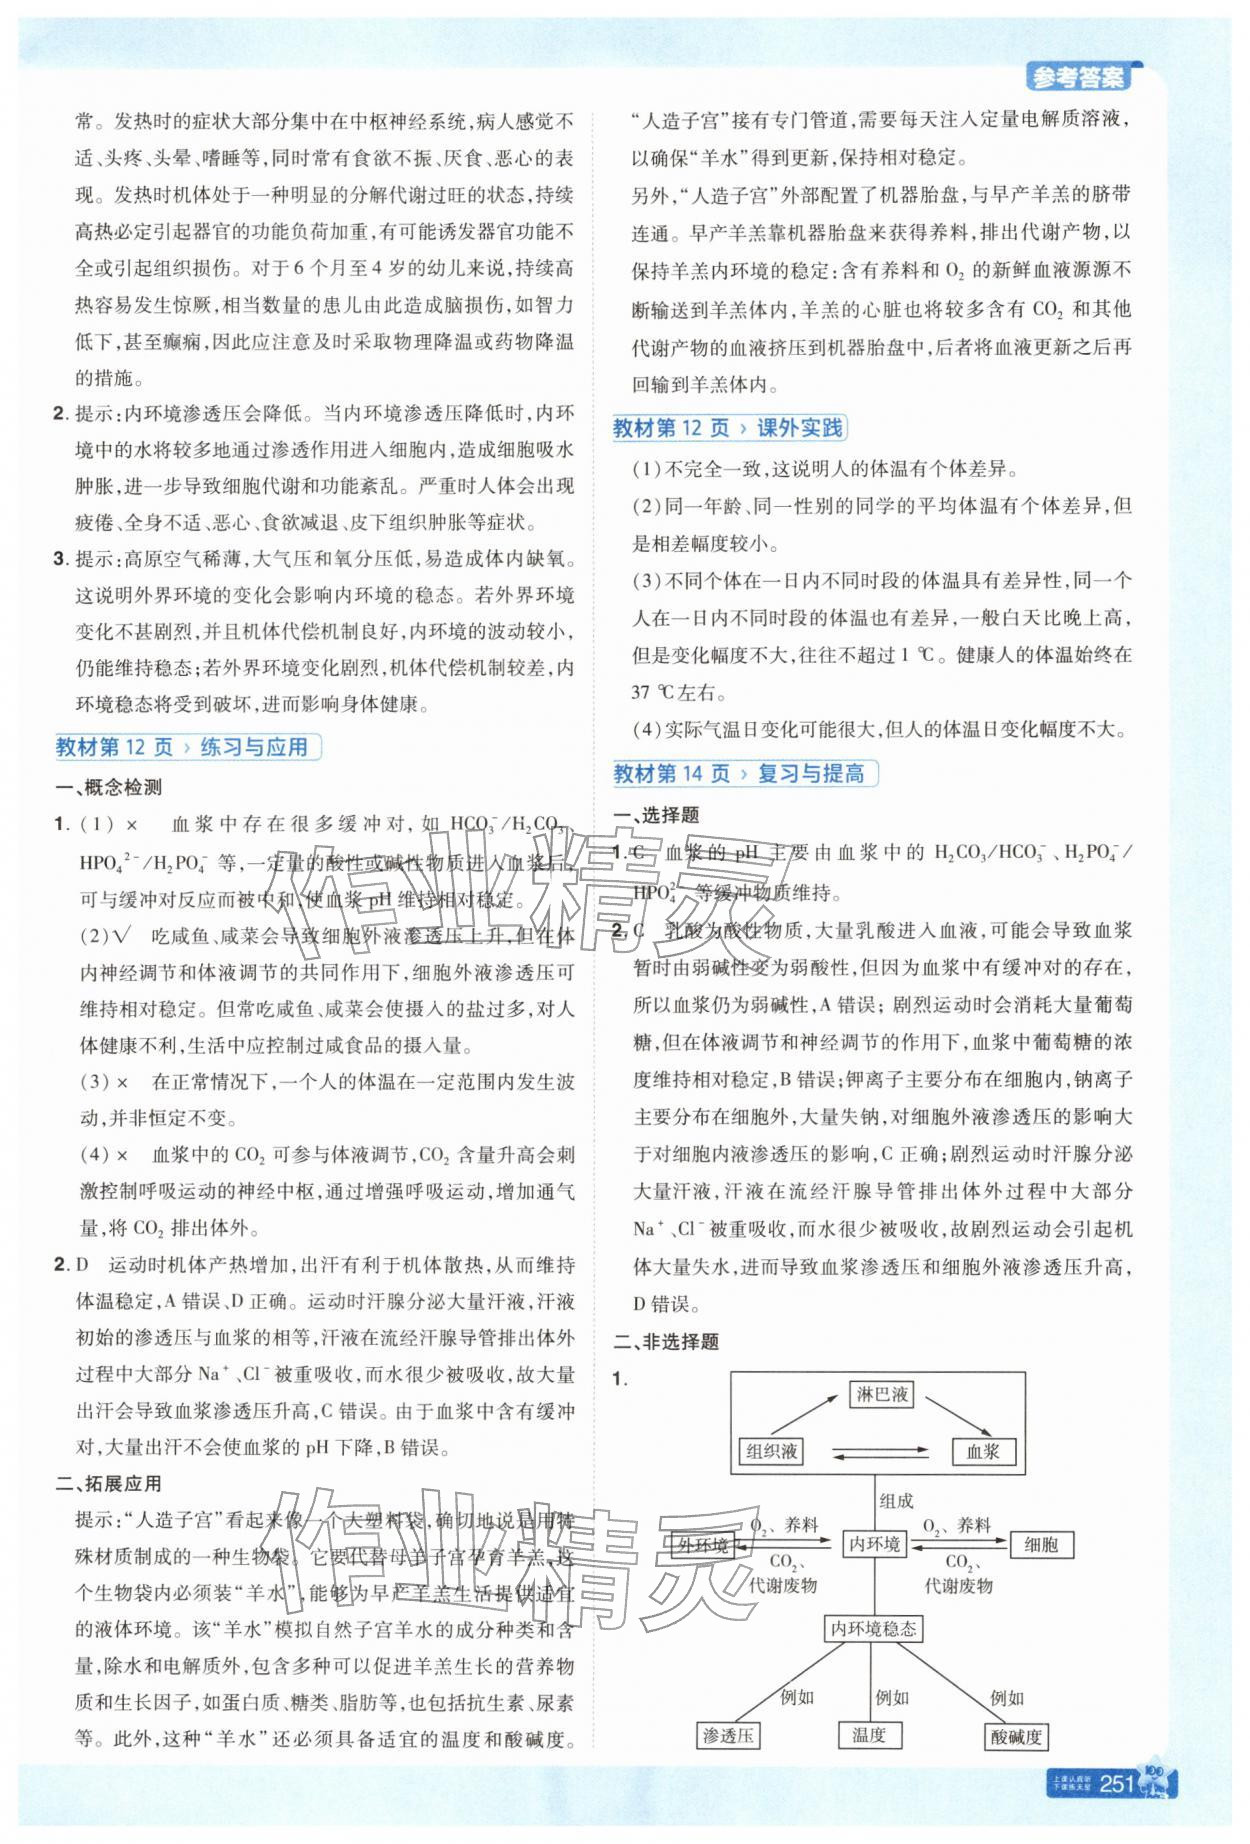 参考答案
常。发热时的症状大部分集中在中枢神经系统,病人感觉不
适、头疼、头晕、嗜睡等,同时常有食欲不振、厌食、恶心的表
现。发热时机体处于一种明显的分解代谢过旺的状态,持续
高热必定引起器官的功能负荷加重,有可能诱发器官功能不
全或引起组织损伤。对于 6 个月至 4 岁的幼儿来说,持续高
热容易发生惊厥,相当数量的患儿由此造成脑损伤,如智力
低下,甚至癫痫,因此应注意及时采取物理降温或药物降温
的措施。
2. 提示:内环境渗透压会降低。当内环境渗透压降低时,内环
境中的水将较多地通过渗透作用进入细胞内,造成细胞吸水
肿胀,进一步导致细胞代谢和功能紊乱。严重时人体会出现
疲倦、全身不适、恶心、食欲减退、皮下组织肿胀等症状。
3. 提示:高原空气稀薄,大气压和氧分压低,易造成体内缺氧。
这说明外界环境的变化会影响内环境的稳态。若外界环境
变化不甚剧烈,并且机体代偿机制良好,内环境的波动较小,
仍能维持稳态;若外界环境变化剧烈,机体代偿机制较差,内
环境稳态将受到破坏,进而影响身体健康。
教材第 12 页 › 练习与应用
一、概念检测
1. (1) × 血浆中存在很多缓冲对,如 HCO₃⁻/H₂CO₃、
HPO₄²⁻/H₂PO₄⁻ 等,一定量的酸性或碱性物质进入血浆后,
可与缓冲对反应而被中和,使血浆 pH 维持相对稳定。
(2)√ 吃咸鱼、咸菜会导致细胞外液渗透压上升,但在体
内神经调节和体液调节的共同作用下,细胞外液渗透压可
维持相对稳定。但常吃咸鱼、咸菜会使摄入的盐过多,对人
体健康不利,生活中应控制过咸食品的摄入量。
(3) × 在正常情况下,一个人的体温在一定范围内发生波
动,并非恒定不变。
(4) × 血浆中的 CO₂ 可参与体液调节,CO₂ 含量升高会刺
激控制呼吸运动的神经中枢,通过增强呼吸运动,增加通气
量,将 CO₂ 排出体外。
2. D 运动时机体产热增加,出汗有利于机体散热,从而维持
体温稳定,A 错误、D 正确。运动时汗腺分泌大量汗液,汗液
初始的渗透压与血浆的相等,汗液在流经汗腺导管排出体外
过程中大部分 Na⁺、Cl⁻被重吸收,而水很少被吸收,故大量
出汗会导致血浆渗透压升高,C 错误。由于血浆中含有缓冲
对,大量出汗不会使血浆的 pH 下降,B 错误。
二、拓展应用
提示:“人造子宫”看起来像一个大塑料袋,确切地说是用特
殊材质制成的一种生物袋。它要代替母羊子宫孕育羊羔,这
个生物袋内必须装“羊水”,能够为早产羊羔生活提供适宜
的液体环境。该“羊水”模拟自然子宫羊水的成分种类和含
量,除水和电解质外,包含多种可以促进羊羔生长的营养物
质和生长因子,如蛋白质、糖类、脂肪等,也包括抗生素、尿素
等。此外,这种“羊水”还必须具备适宜的温度和酸碱度。
“人造子宫”接有专门管道,需要每天注入定量电解质溶液,
以确保“羊水”得到更新,保持相对稳定。
另外,“人造子宫”外部配置了机器胎盘,与早产羊羔的脐带
连通。早产羊羔靠机器胎盘来获得养料,排出代谢产物,以
保持羊羔内环境的稳定:含有养料和 O₂ 的新鲜血液源源不
断输送到羊羔体内,羊羔的心脏也将较多含有 CO₂ 和其他
代谢产物的血液挤压到机器胎盘中,后者将血液更新之后再
回输到羊羔体内。
教材第 12 页 › 课外实践
(1)不完全一致,这说明人的体温有个体差异。
(2)同一年龄、同一性别的同学的平均体温有个体差异,但
是相差幅度较小。
(3)不同个体在一日内不同时段的体温具有差异性,同一个
人在一日内不同时段的体温也有差异,一般白天比晚上高,
但是变化幅度不大,往往不超过 1 ℃。健康人的体温始终在
37 ℃左右。
(4)实际气温日变化可能很大,但人的体温日变化幅度不大。
教材第 14 页 › 复习与提高
一、选择题
1. C 血浆的 pH 主要由血浆中的 H₂CO₃/HCO₃⁻、H₂PO₄⁻/
HPO₄²⁻ 等缓冲物质维持。
2. C 乳酸为酸性物质,大量乳酸进入血液,可能会导致血浆
暂时由弱碱性变为弱酸性,但因为血浆中有缓冲对的存在,
所以血浆仍为弱碱性,A 错误;剧烈运动时会消耗大量葡萄
糖,但在体液调节和神经调节的作用下,血浆中葡萄糖的浓
度维持相对稳定,B 错误;钾离子主要分布在细胞内,钠离子
主要分布在细胞外,大量失钠,对细胞外液渗透压的影响大
于对细胞内液渗透压的影响,C 正确;剧烈运动时汗腺分泌
大量汗液,汗液在流经汗腺导管排出体外过程中大部分
Na⁺、Cl⁻被重吸收,而水很少被吸收,故剧烈运动会引起机
体大量失水,进而导致血浆渗透压和细胞外液渗透压升高,
D 错误。
二、非选择题
1.
淋巴液
组织液 血浆
组成
外环境 O₂、养料 内环境 O₂、养料 细胞
CO₂、 CO₂、
代谢废物 代谢废物
内环境稳态
例如 例如 例如
渗透压 温度 酸碱度
作业精灵
作业精灵
上课认真听
下课练天星
251
100